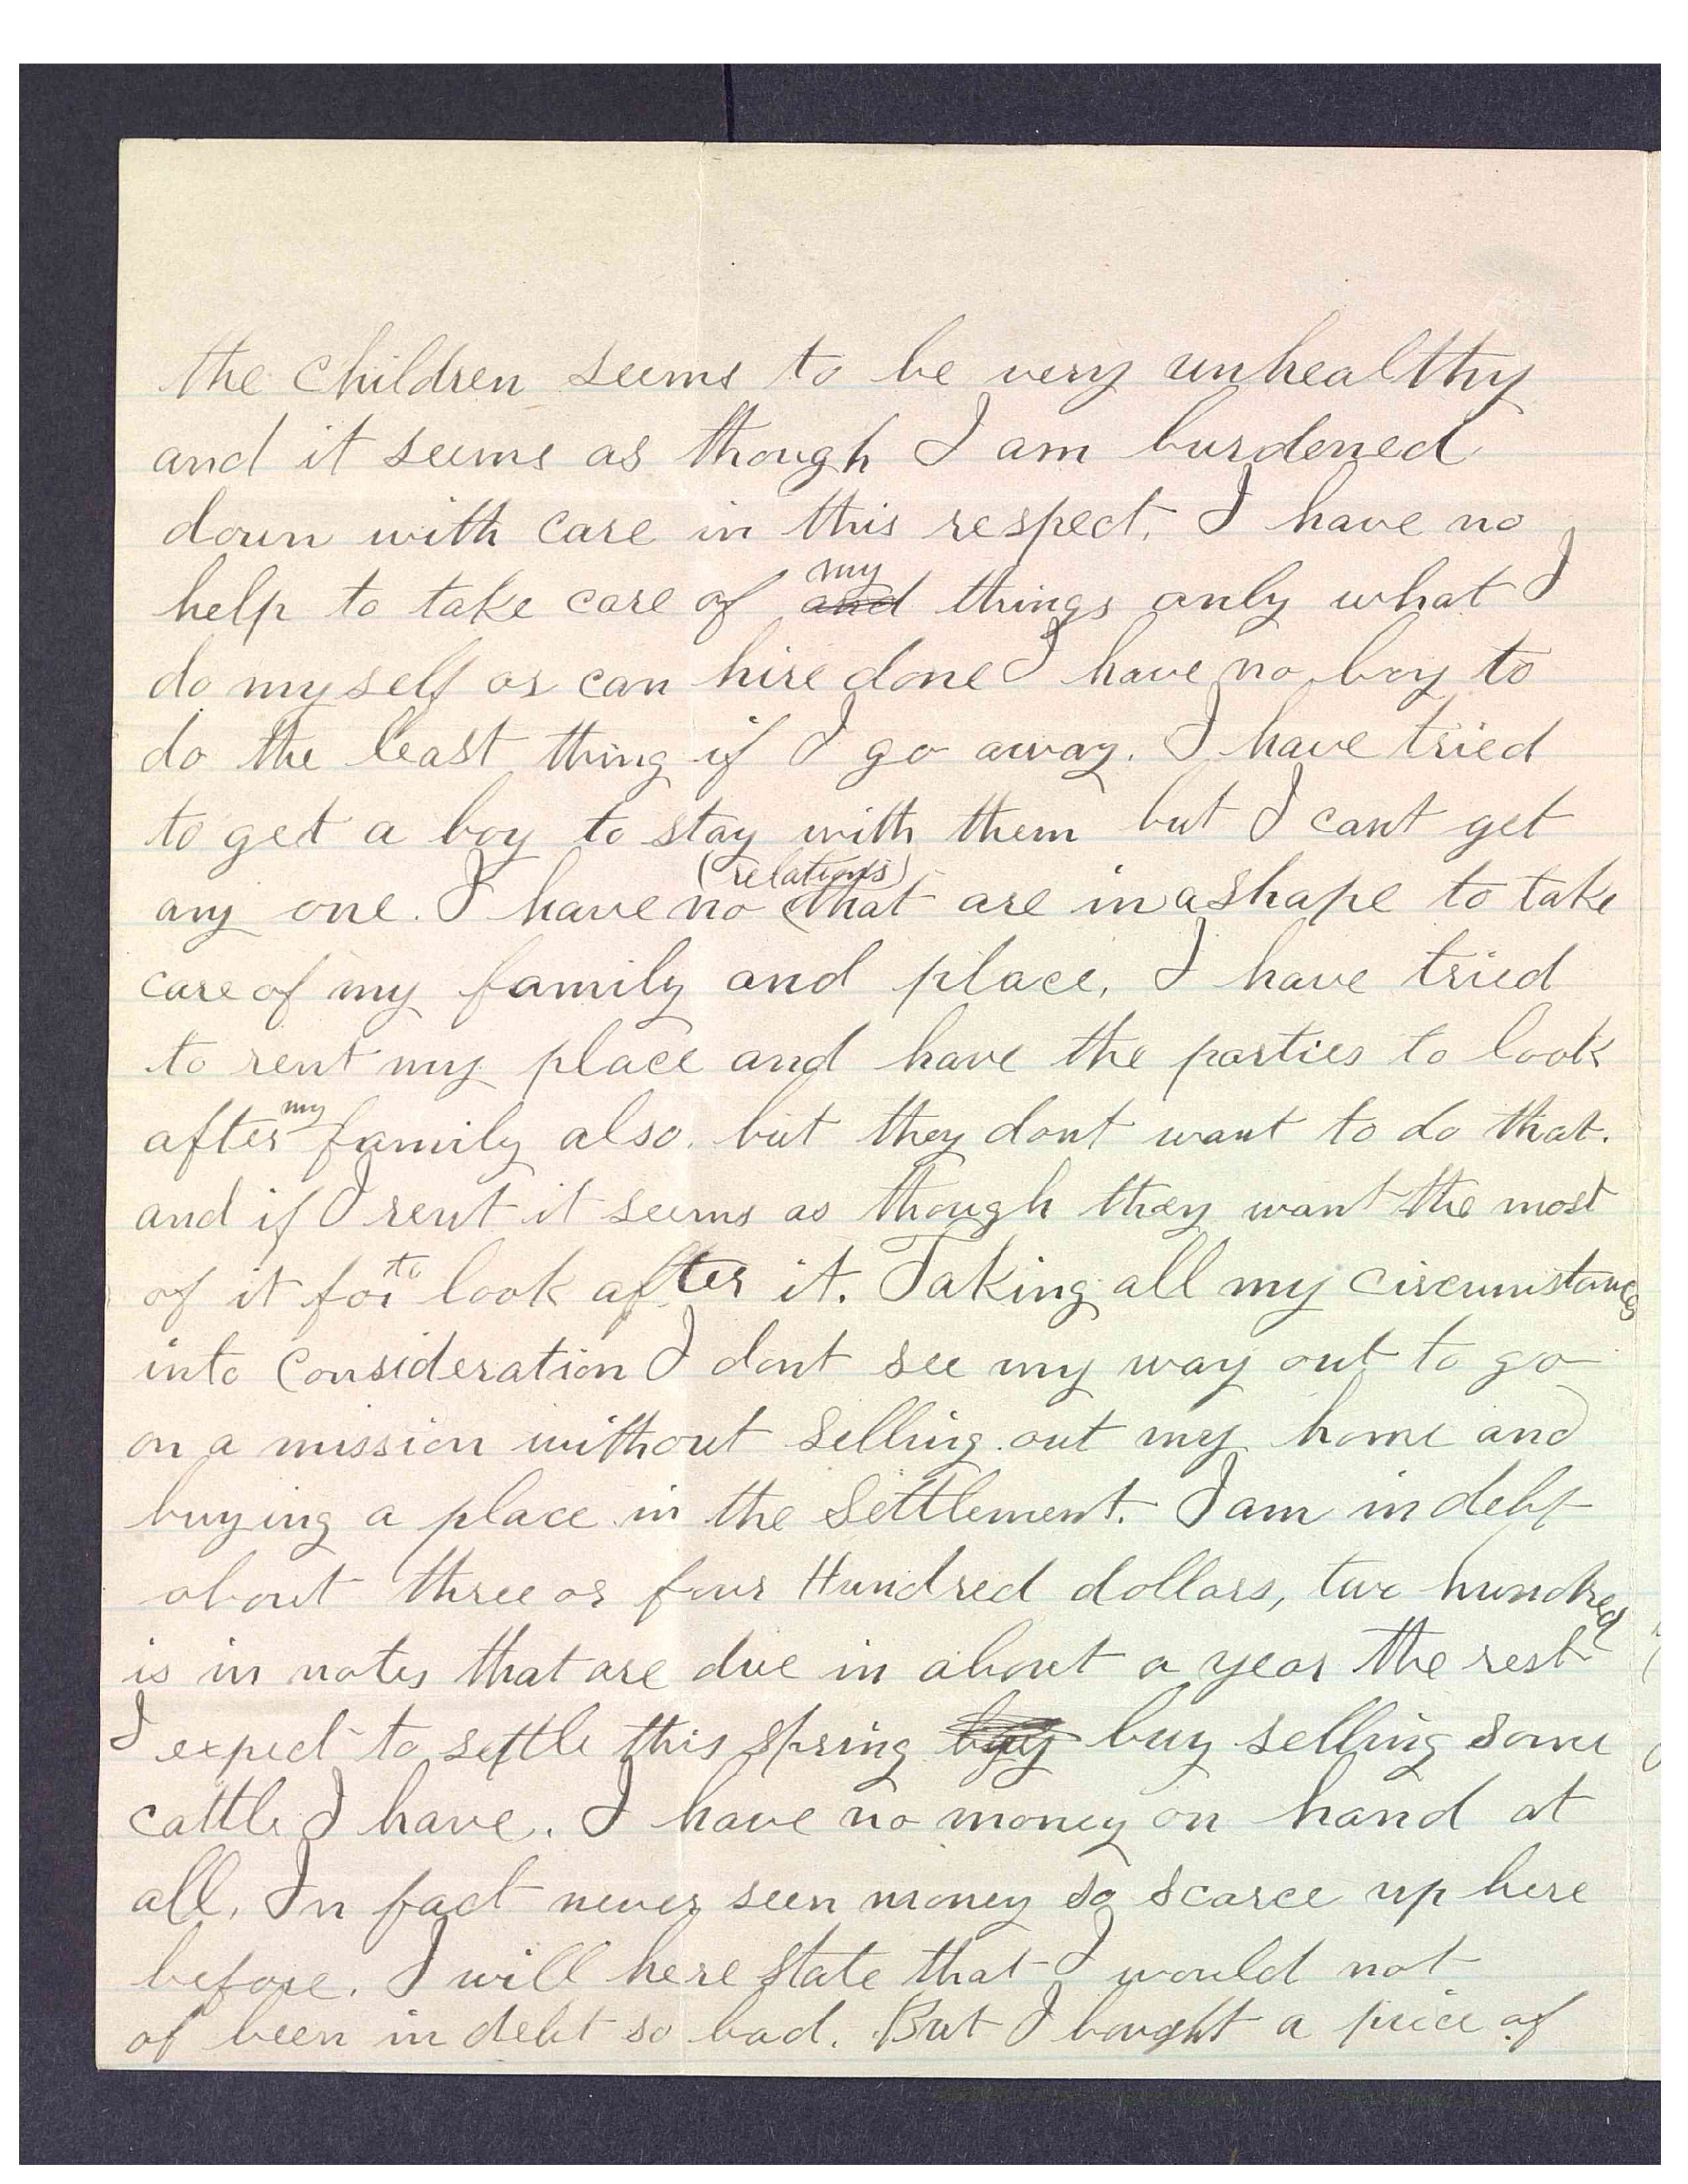 the children seems to be very unhealthy
and it seems as though I am burdened
down with care in this respect, I have no
help to take care of and my things only what I
do myself or can hire done I have no boy to
do the least thing if I go away. I have tried
to get a boy to stay with them but I cant get
any one. I have no (relations) that are in a shape to take
care of my family and place, I have tried
to rent my place and have the parties to look
after my family also. but they dont want to do that.
and if I rent it seems as though they want the most
of it for to look after it. Taking all my circumstances
into Consideration I dont see my way out to go
on a mission without selling out my home and
buying a place in the Settlement. I am in debt
about three or four Hundred dollars, two hundred
is in notes that are due in about a year the rest
I expect to settle this spring buy selling some
cattle I have. I have no money on hand at
all, In fact never seen money so scarce up here
before. I will here state that I would not
of been in debt so bad. But I bought a piece of